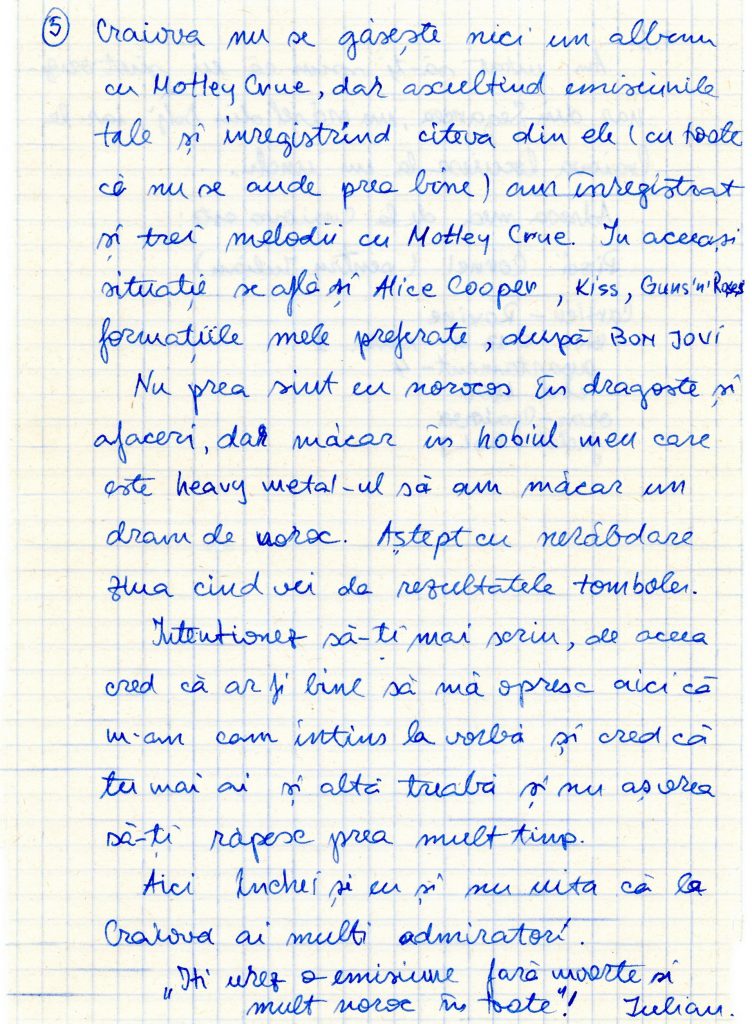 5 Craiova nu se găsește nici un album
cu Motley Crue, dar ascultînd emisiunile
tale și inregistrînd citeva din ele (cu toate
că nu se aude prea bine) am înregistrat
și trei melodii cu Motley Crue. In aceeași
situație se află și Alice Cooper, Kiss, Guns'n'Roses
formațiile mele preferate, după BON JOVI
Nu prea sint eu norocos în dragoste și
afaceri, dar măcar în hobiul meu care
este heavy metal-ul să am măcar un
dram de noroc. Aștept cu nerăbdare
ziua cind vei da rezultatele tombolei.
Intentionez să-ti mai scriu, de aceea
cred că ar fi bine să mă opresc aici că
m-am cam intins la vorbă și cred că
tu mai ai și altă treabă și nu aș vrea
să-ți răpesc prea mult timp.
Aici închei și eu și nu uita că la
Craiova ai multi admiratori.
„Iti urez o emisiune fară moarte si
mult noroc în toate"! Iulian.